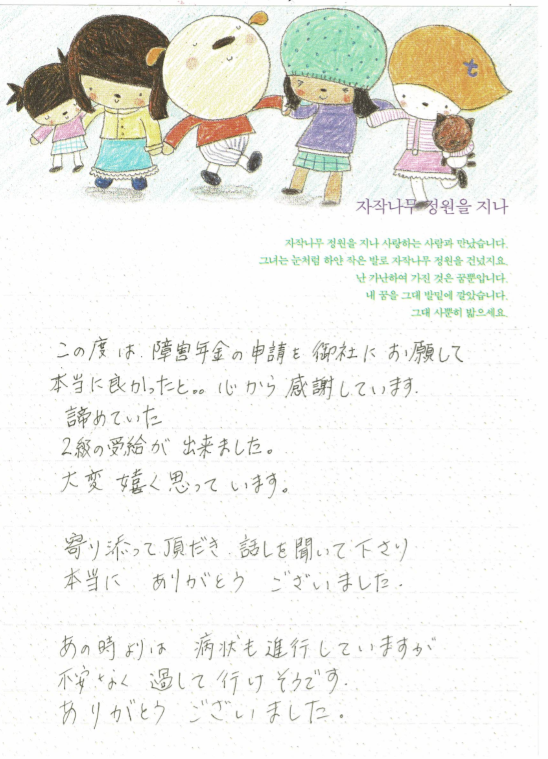 자작나무 정원을 지나
자작나무 정원을 지나 사랑하는 사람과 만났습니다.
그녀는 눈처럼 하얀 작은 발로 자작나무 정원을 건넜지요.
난 가난하여 가진 것은 꿈뿐입니다.
내 꿈을 그대 발밑에 깔았습니다.
그대 사뿐히 밟으세요.
この度は、障害年金の申請を御社にお願して
本当に良かったと。。心から感謝しています.
諦めていた
2級の受給が出来ました。
大変嬉く思っています。
寄り添って頂だき、話しを聞いて下さり
本当に ありがとう ございました.
あの時よりは 病状も進行していますが
不安なく 過して行けそうです.
ありがとう ございました。